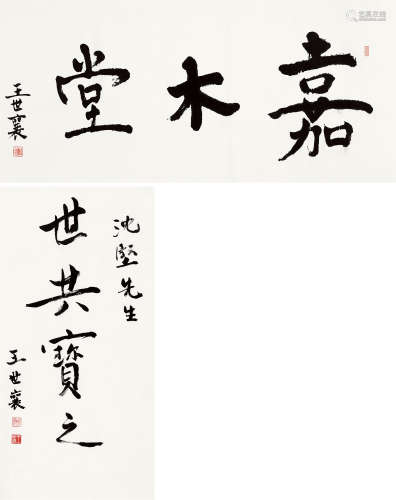 嘉木堂
王世襄
沈堅先生
世共寶之
王世襄